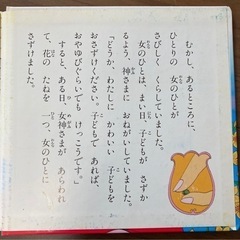 むかし、あるところに、
ひとりの 女のひとが
さびしく くらしていました。
女のひとは、まい日、子どもが さずか
るよう、神さまに おねがいしていました。
「どうか、わたしに かわいい 子どもを
おさずけください。子どもで あれば、
おやゆびぐらいでも けっこうです。」
すると、ある日、女神さまが あらわれ
て、花の たねを 一つ、女のひとに
さずけました。